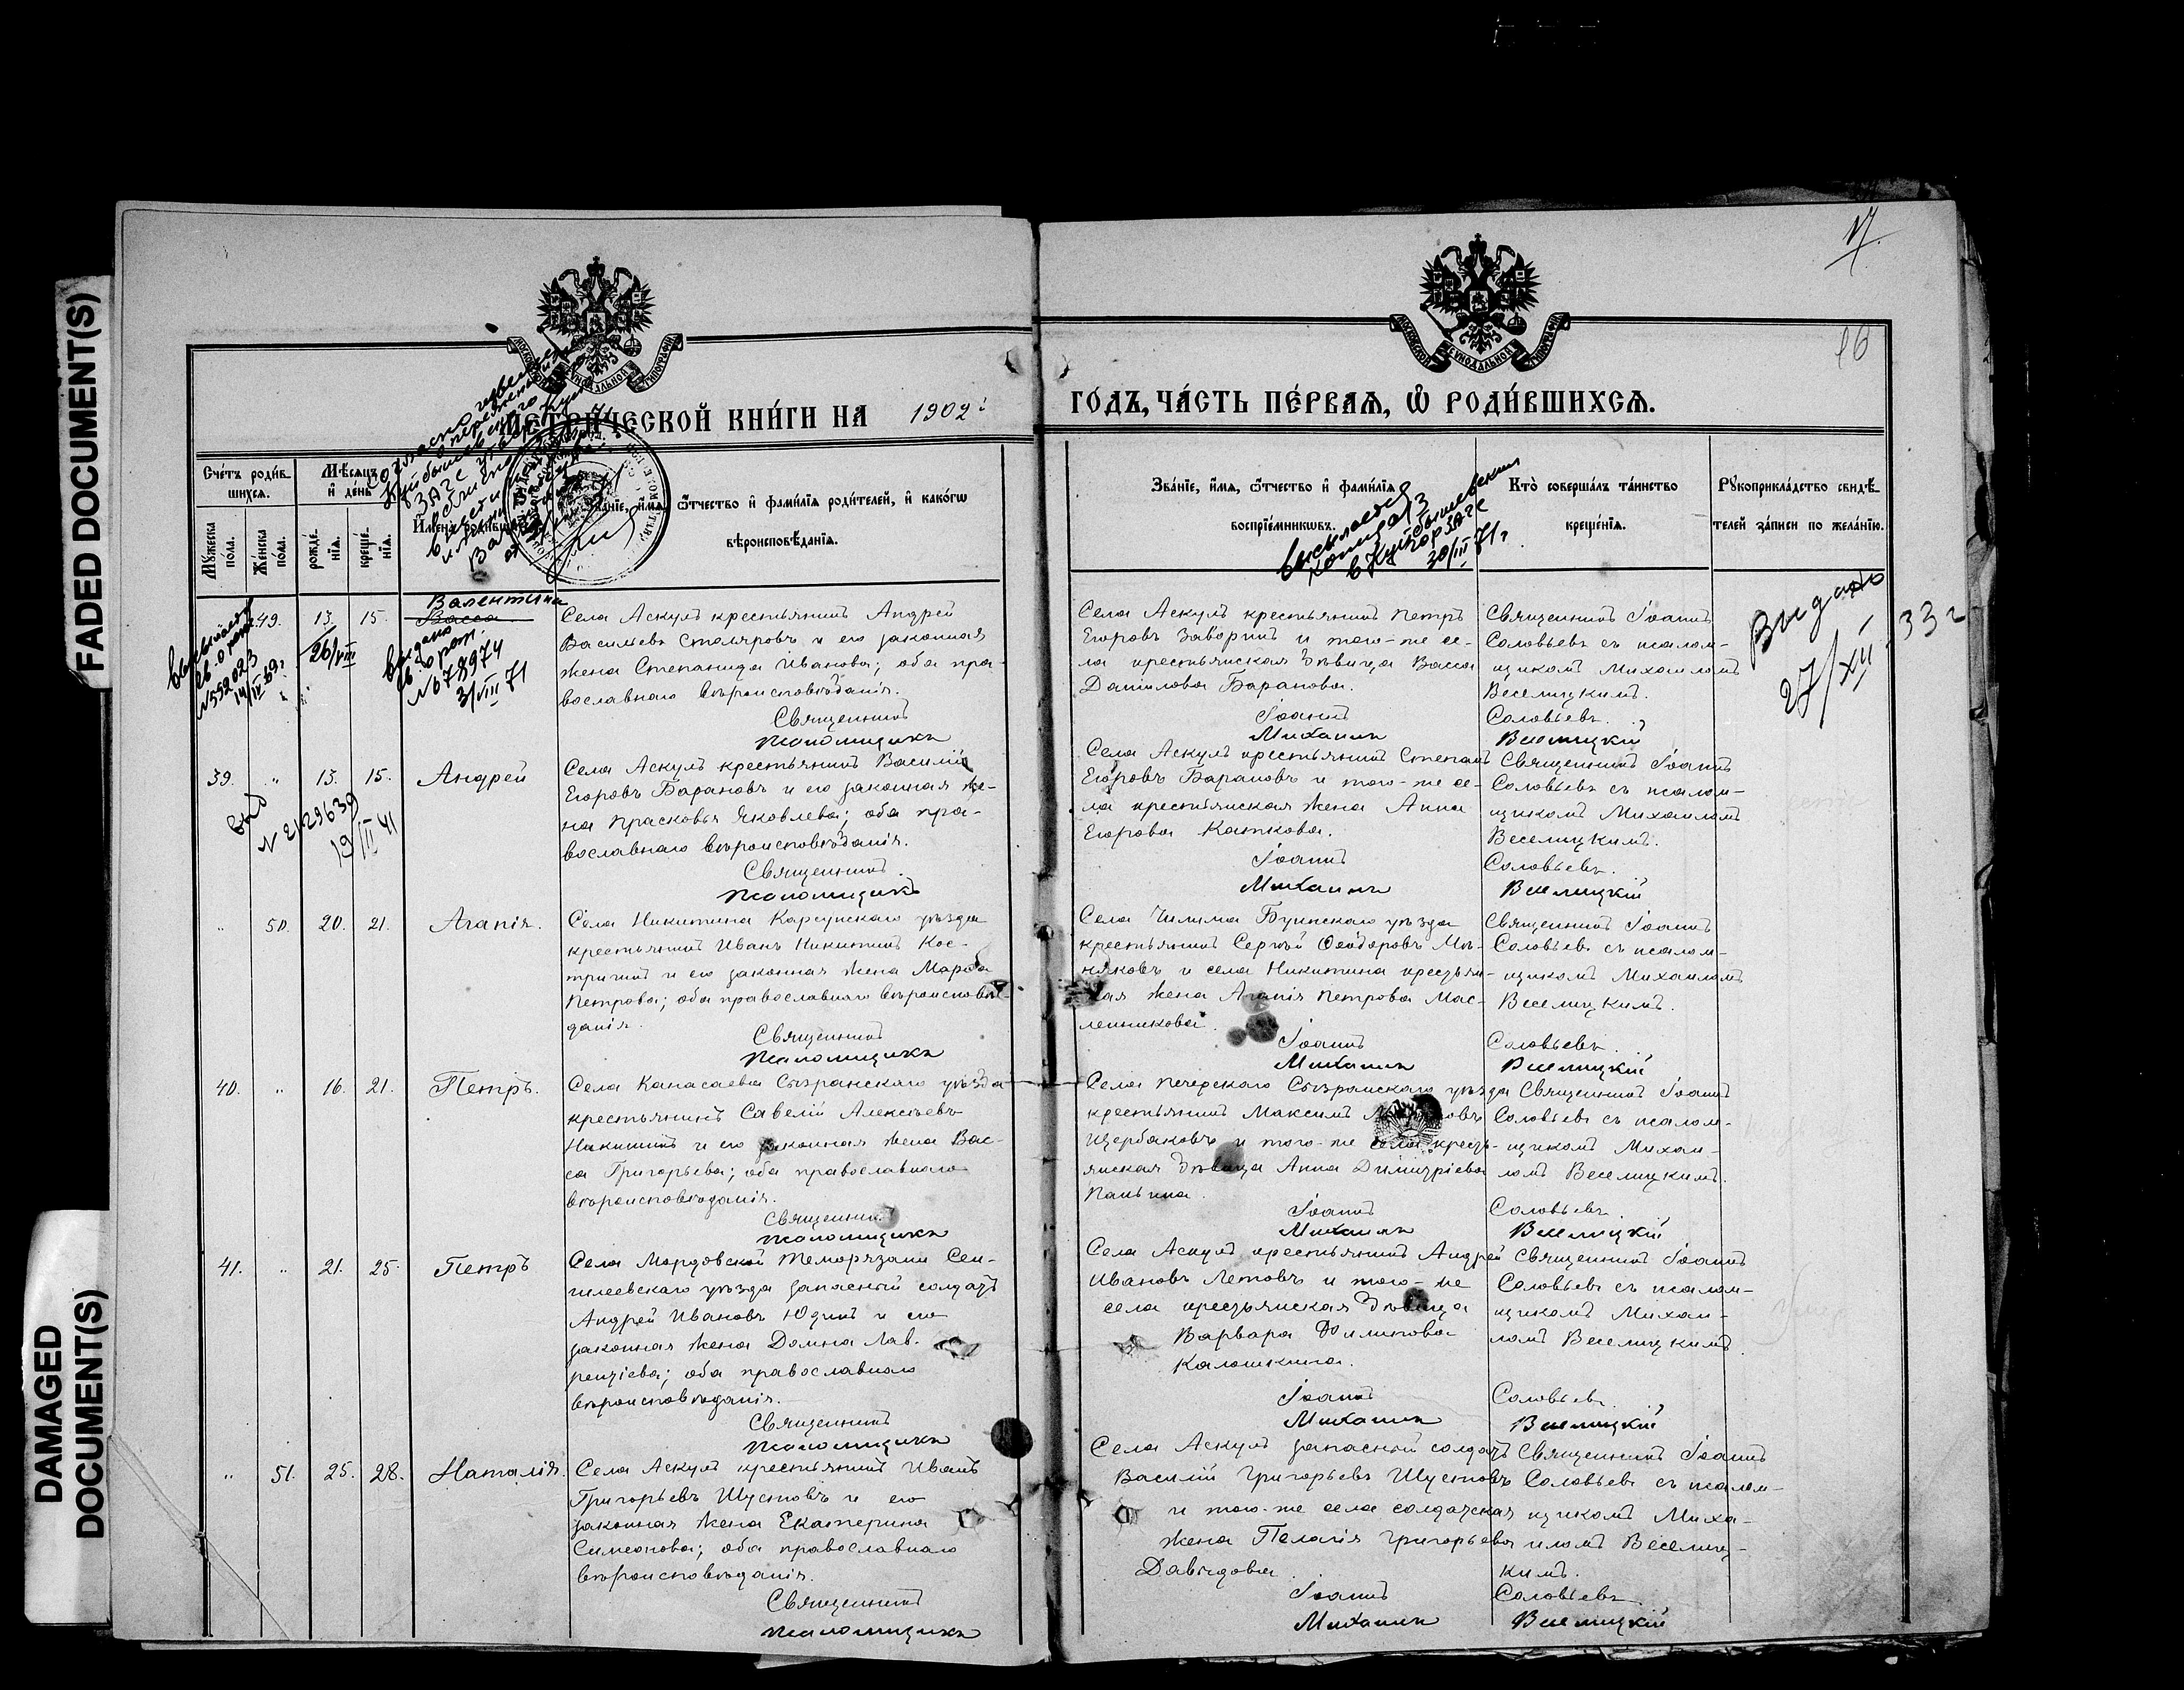 FADED DOCUMENT(S)
DAMAGED
DOCUMENT(S)
17.
16
МЕТРИ́ЧЕСКОЙ КНИ́ГИ НА 1902
ГО́ДЪ, ЧА́СТЬ ПЕ́РВАѦ, Ѽ РОДИ́ВШИХСѦ.
Сче́тъ роди́в-
шихсѧ.
Мꙋ́жеска
по́ла.
Же́нска
по́ла.
Мѣ́сѧцъ
и҆ де́нь
рожде́-
нїѧ.
креще́-
нїѧ.
И҆мена̀ роди́вшихсѧ.
Зва́нїе, и҆́мѧ, ѻ҆́тчество и҆ фами́лїѧ роди́телей, и҆ како́гѡ
вѣроисповѣ́данїѧ.
Зва́нїе, и҆́мѧ, ѻ҆́тчество и҆ фами́лїѧ
воспрїе́мникѡвъ.
Кто̀ соверша́лъ та́инство
креще́нїѧ.
Рꙋкоприкла́дство свидѣ́-
телей за́писи по жела́нїю.
высылается
копия
в Куйбышевский
горЗАГС
30/III 71г
49. 13. 15.
Валентина
Васса
26/VIII
№552023
14/IV 59г
выдано
св. о рож.
№078974
3/VIII 71
Села Аскулъ крестьянинъ Андрей
Васильевъ Столяровъ и его законная
жена Степанида Иванова; оба пра-
вославнаго вѣроисповѣданія.
Священникъ
Псаломщикъ
Села Аскулъ крестьянинъ Петръ
Егоровъ Заборинъ и того-же се-
ла крестьянская дѣвица Васса
Данилова Баранова.
Іоаннъ
Михаилъ
Священникъ Іоаннъ
Соловьевъ съ псалом-
щикомъ Михаиломъ
Веселицкимъ.
Соловьевъ.
Веселицкій
Выдано
27/XII 33г
39. „ 13. 15. Андрей
выд
N 2129639
19/III 41
Села Аскулъ крестьянинъ Василій
Егоровъ Барановъ и его законная же-
на Прасковья Яковлева; оба пра-
вославнаго вѣроисповѣданія.
Священникъ
Псаломщикъ
Села Аскулъ крестьянинъ Степанъ
Егоровъ Барановъ и того-же се-
ла крестьянская жена Анна
Егорова Каткова.
Іоаннъ
Михаилъ
Священникъ Іоаннъ
Соловьевъ съ псалом-
щикомъ Михаиломъ
Веселицкимъ.
Соловьевъ.
Веселицкій
„ 50. 20. 21. Агапія.
Села Никитина Карсунскаго уѣзда
крестьянинъ Иванъ Никитинъ Кос-
тринъ и его законная жена Марѳа
Петрова; оба православнаго вѣроисповѣ-
данія.
Священникъ
Псаломщикъ
Села Чилима Буинскаго уѣзда
крестьянинъ Сергѣй Ѳеодоровъ
и села Никитина крестьян-
кая жена Агапія Петрова Мас-
ленникова.
Іоаннъ
Михаилъ
Священникъ Іоаннъ
Соловьевъ съ псалом-
щикомъ Михаиломъ
Веселицкимъ.
Соловьевъ.
Веселицкій
40. „ 16. 21. Петръ.
Села Канасаева Сызранскаго уѣзда
крестьянинъ Савелій Алексѣевъ
Никитинъ и его законная жена Вас-
са Григорьева; оба православнаго
вѣроисповѣданія.
Священникъ
Псаломщикъ
Села Печерскаго Сызранскаго уѣзда
крестьянинъ Максимъ
Щербаковъ и того-же села кресть-
янская дѣвица Анна Димитріева
Паньшина.
Іоаннъ
Михаилъ
Священникъ Іоаннъ
Соловьевъ съ псалом-
щикомъ Михаи-
ломъ Веселицкимъ.
Соловьевъ.
Веселицкій
41. „ 21. 25. Петръ
Села Мордовской Темрязани Сен-
гилеевскаго уѣзда запасный солдатъ
Андрей Ивановъ Юдинъ и его
законная жена Домна Лав-
рентіева; оба православнаго
вѣроисповѣданія.
Священникъ
Псаломщикъ
Села Аскулъ крестьянинъ Андрей
Ивановъ Летовъ и того-же
села крестьянская дѣвица
Варвара Филипова
Калошкина.
Іоаннъ
Михаилъ
Священникъ Іоаннъ
Соловьевъ съ псалом-
щикомъ Михаи-
ломъ Веселицкимъ.
Соловьевъ.
Веселицкій
„ 51. 25. 28. Наталія.
Села Аскулъ крестьянинъ Иванъ
Григорьевъ Шустовъ и его
законная жена Екатерина
Симеонова; оба православнаго
вѣроисповѣданія.
Священникъ
Псаломщикъ
Села Аскулъ запасной солдатъ
Василій Григорьевъ Шустовъ
и того-же села солдатская
жена Пелагія Григорьева
Давыдова.
Іоаннъ
Михаилъ
Священникъ Іоаннъ
Соловьевъ съ псалом-
щикомъ Миха-
иломъ Веселиц-
кимъ.
Соловьевъ.
Веселицкій